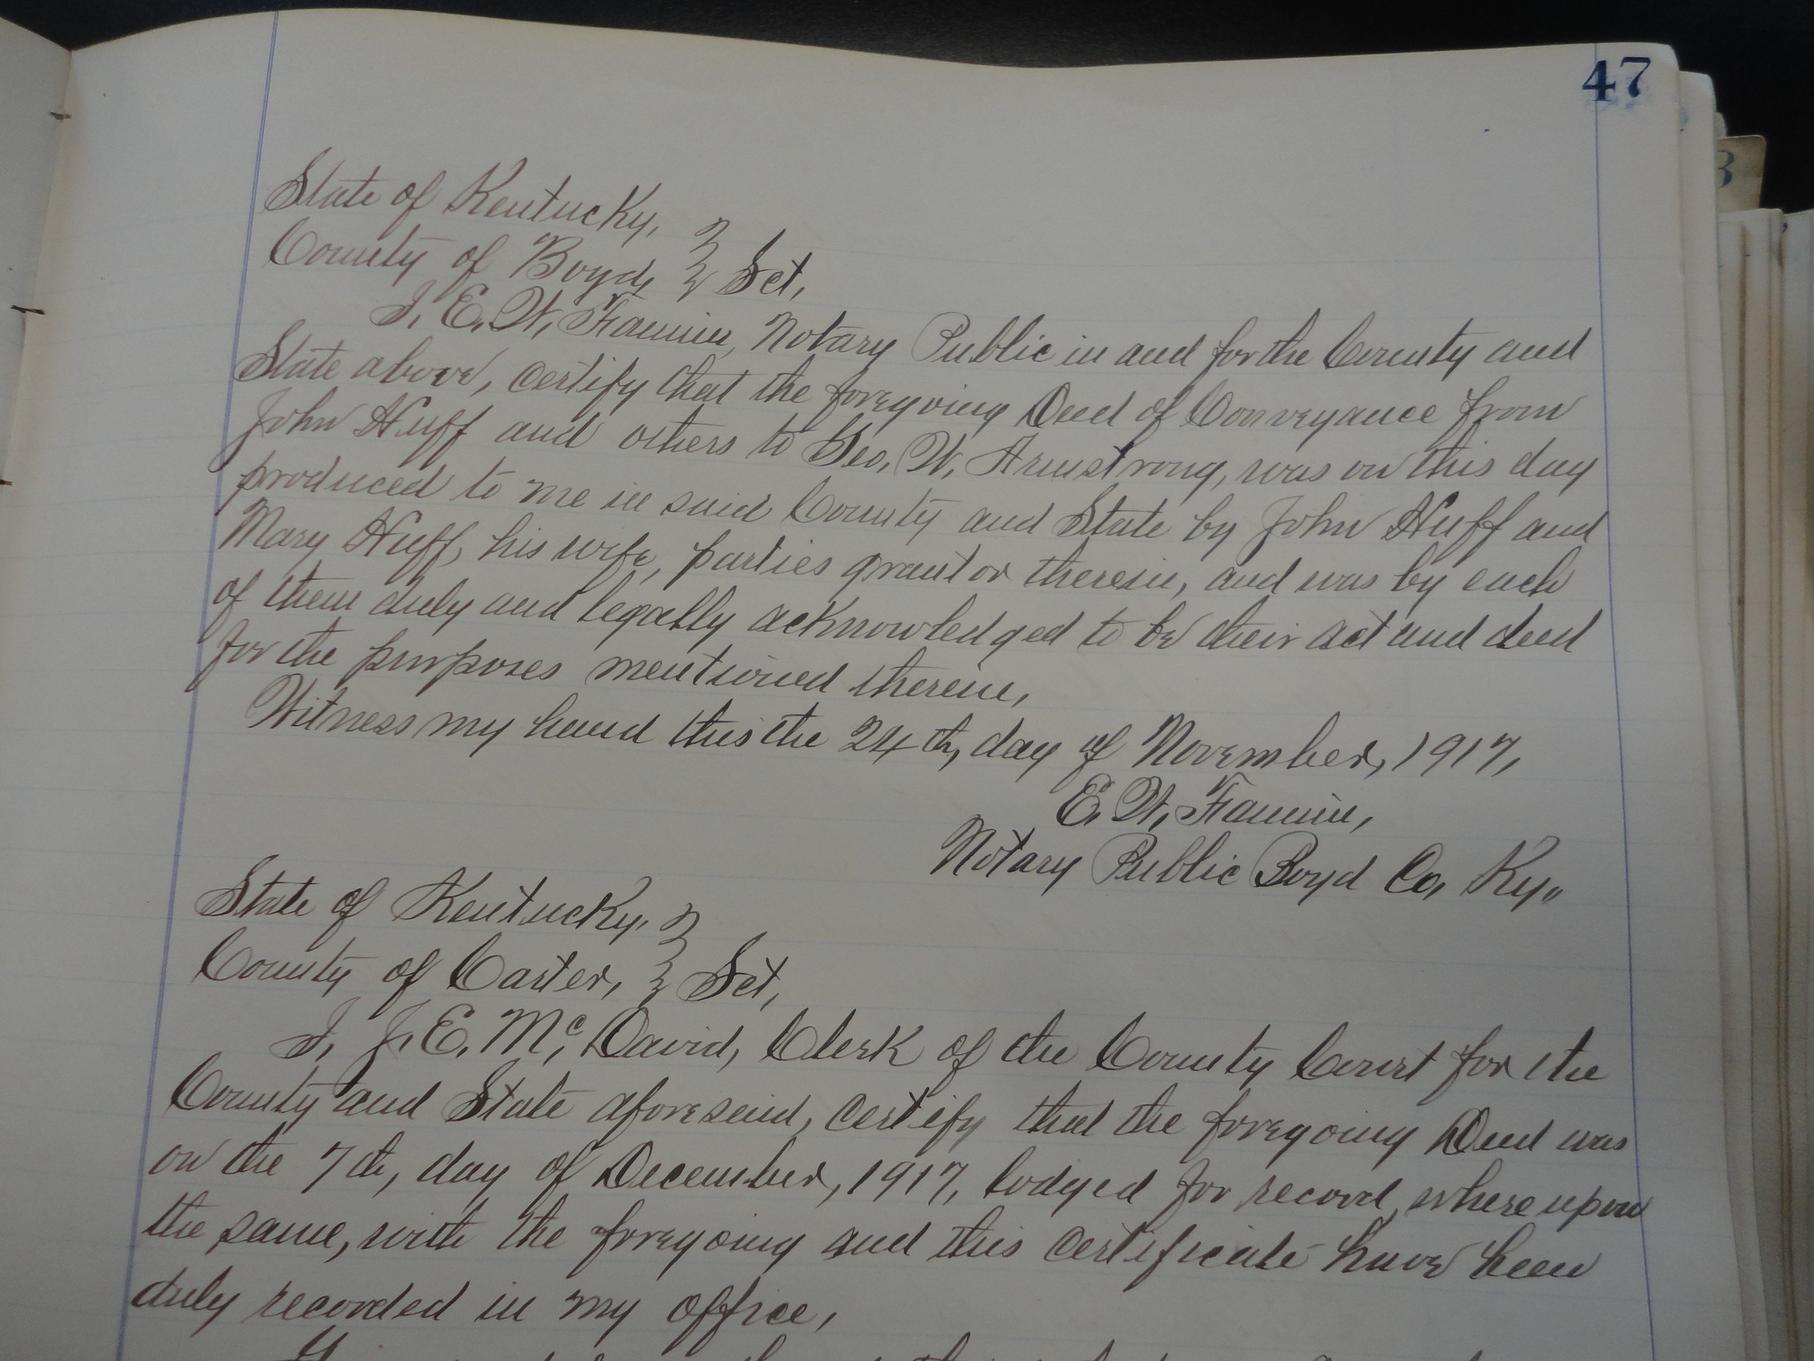 47
State of Kentucky,
County of Boyd, } Sct,
I, E. W. Fannin, Notary Public in and for the County and
State above, certify that the foregoing Deed of Conveyance from
John Huff and others to Geo. W. Armstrong, was on this day
produced to me in said County and State by John Huff and
Mary Huff, his wife, parties grantor therein, and was by each
of them duly and legally acknowledged to be their act and deed
for the purposes mentioned therein,
Witness my hand this the 24th, day of November, 1917,
E. W. Fannin,
Notary Public Boyd Co, Ky,,
State of Kentucky,
County of Carter, } Sct,
I, J. E. Mc. David, Clerk of the County Court for the
County and State aforesaid, certify that the foregoing Deed was
on the 7th, day of December, 1917, lodged for record, where upon
the same, with the foregoing and this certificate have been
duly recorded in my office,